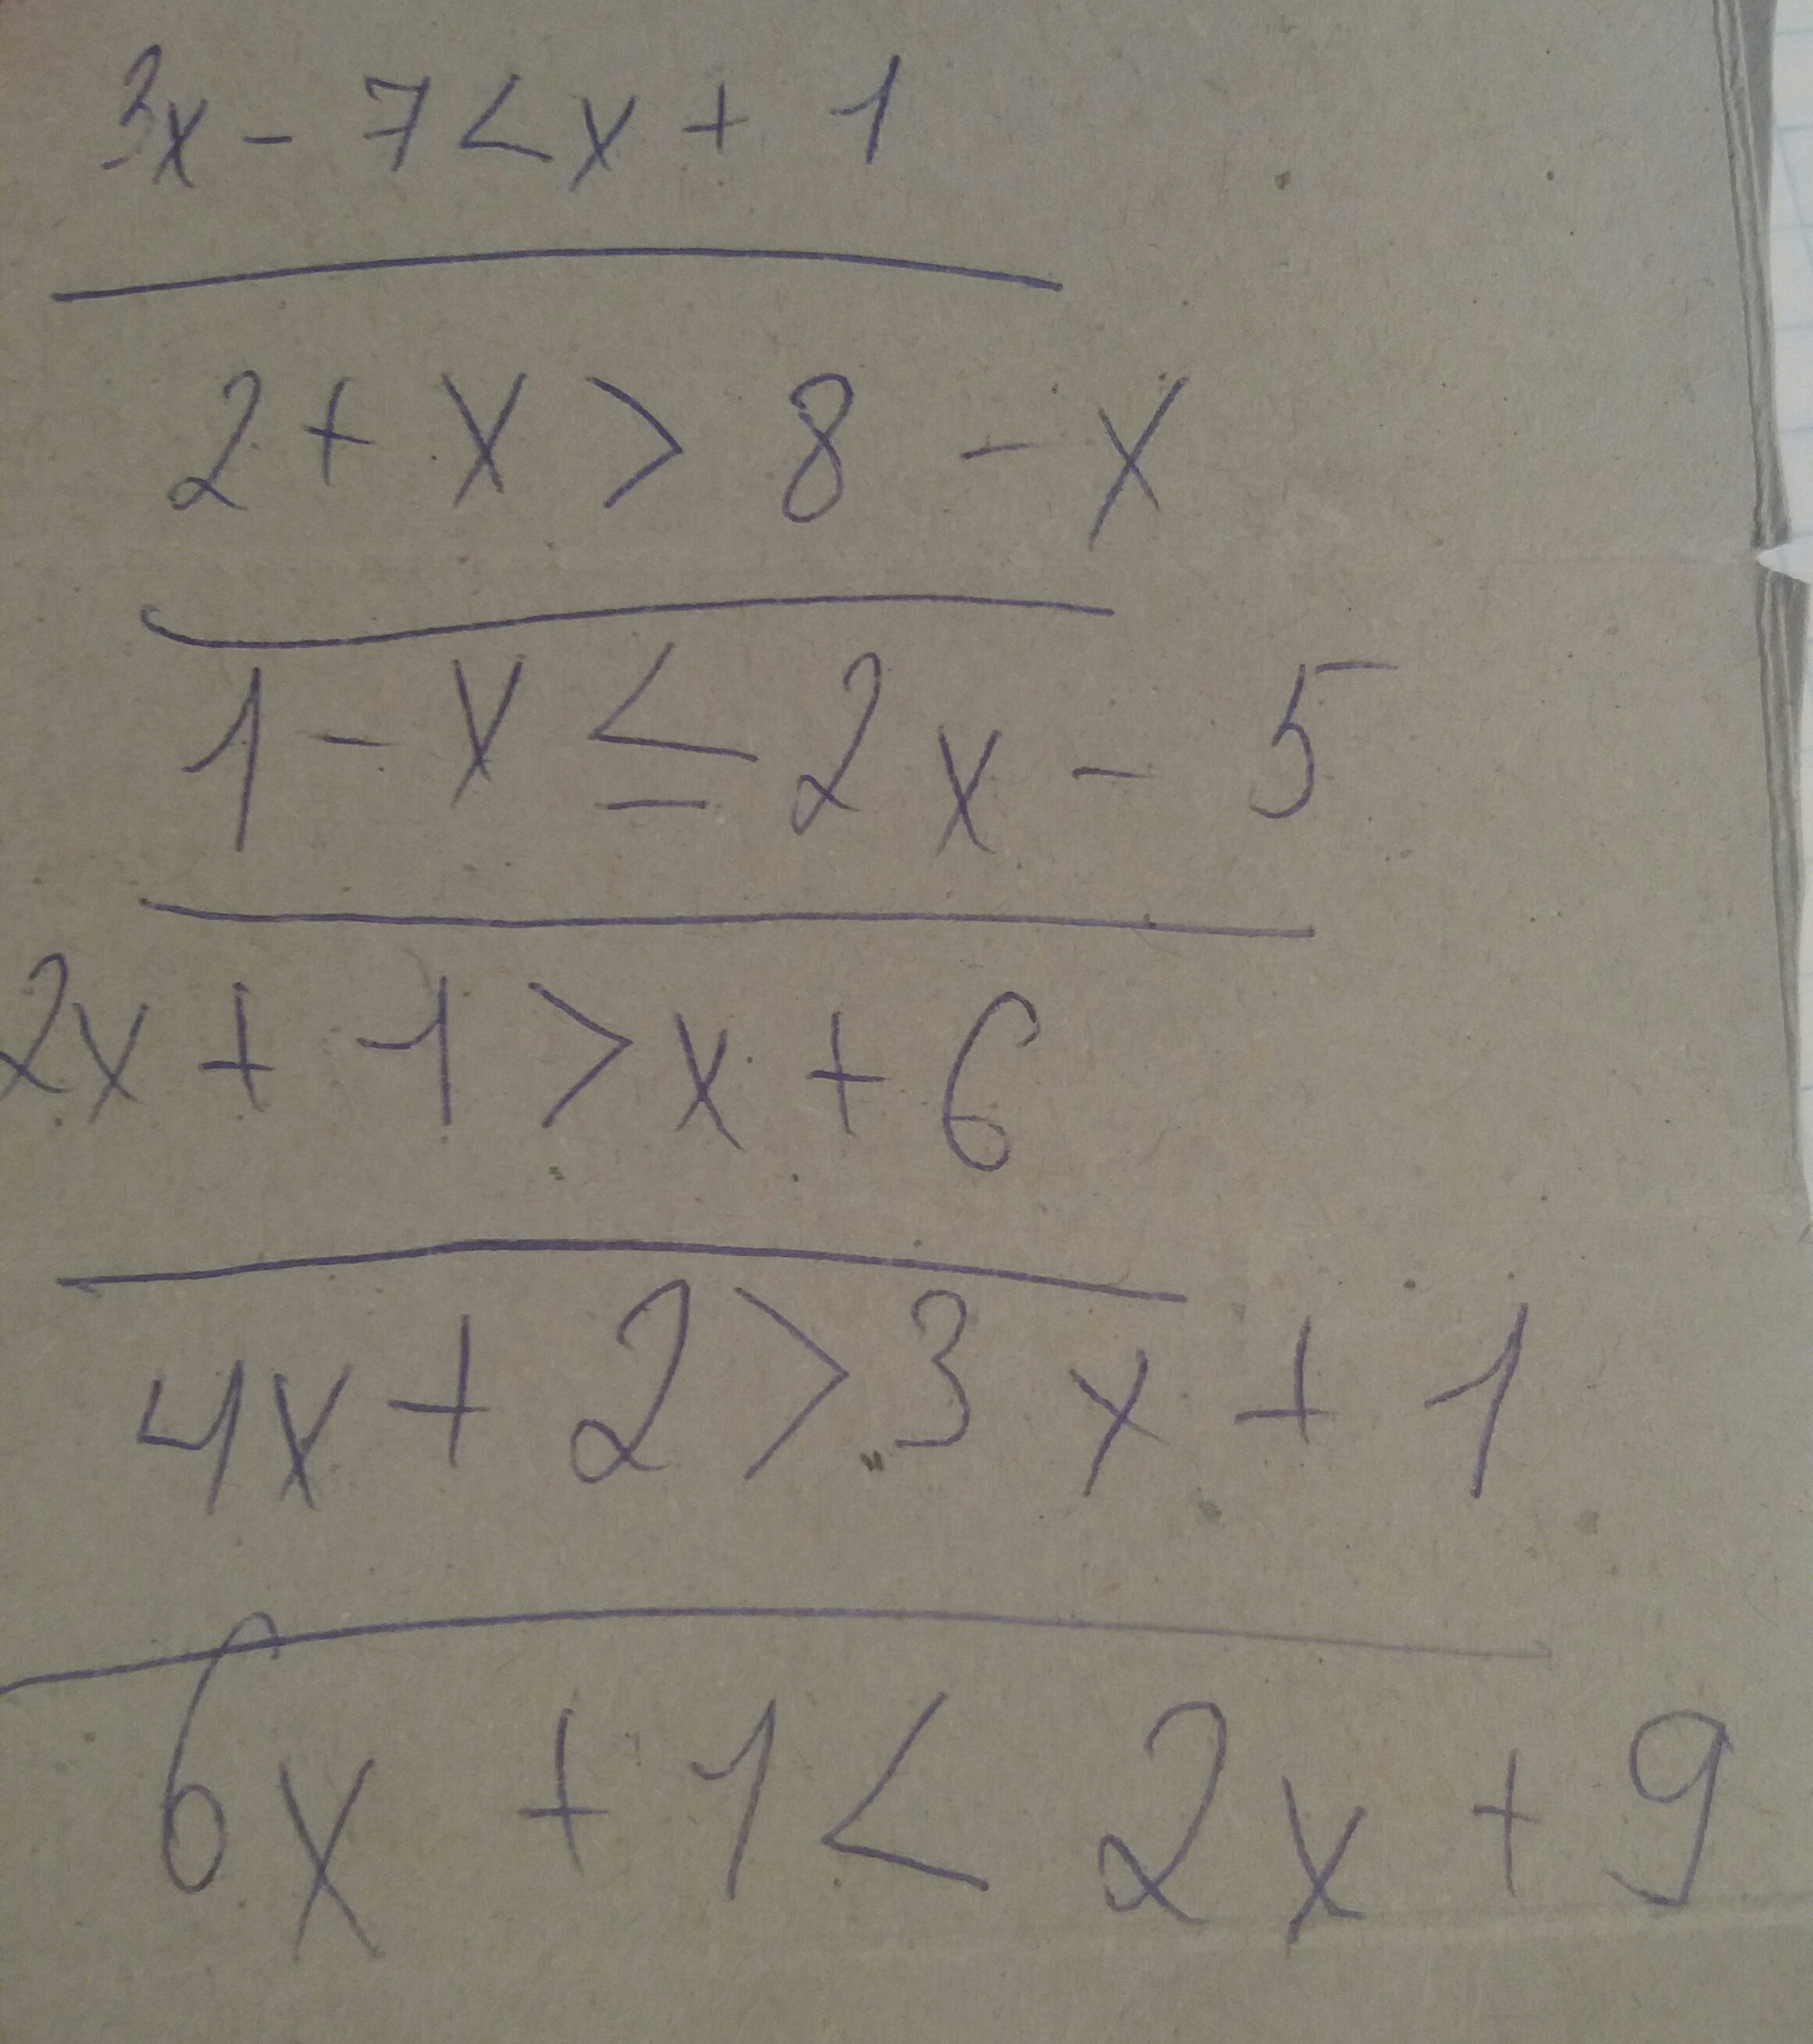 3x - 7 < x + 1
2 + x > 8 - x
1 - x ≤ 2x - 5
2x + 1 > x + 6
4x + 2 > 3x + 1
6x + 1 < 2x + 9